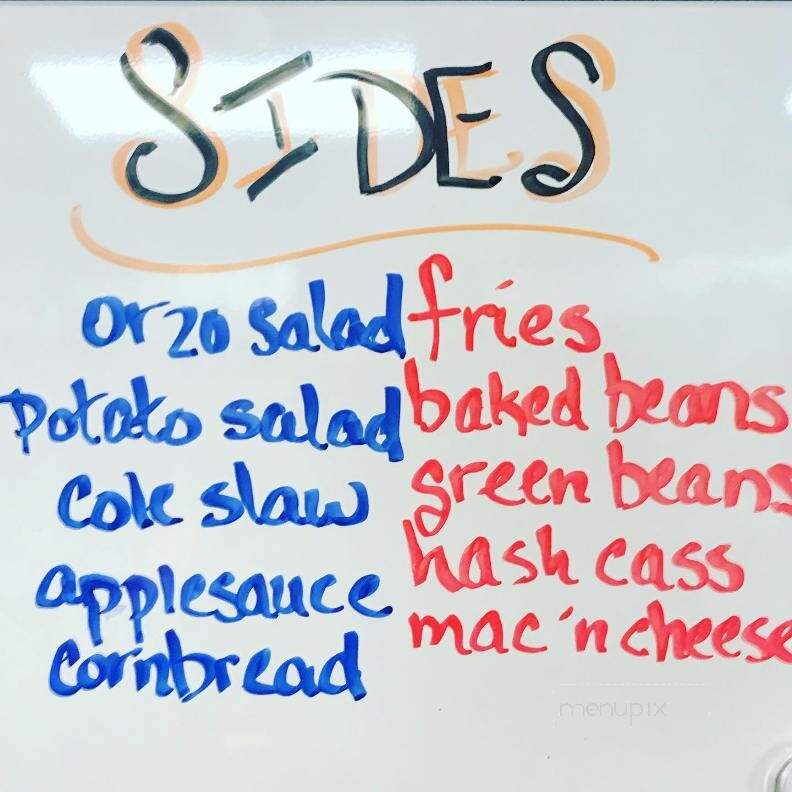 SIDES
orzo salad
potato salad
cole slaw
applesauce
cornbread
fries
baked beans
green beans
hash cass
mac 'n cheese
menupix